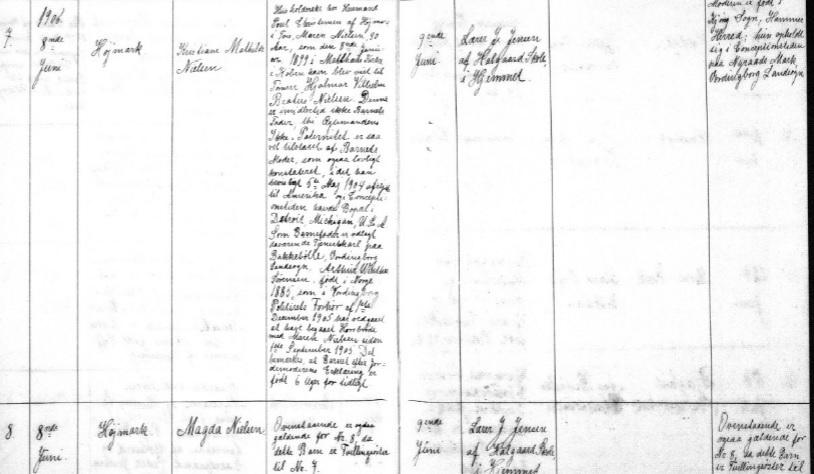 1906.
7.
8nde
Juni
Højmark
Kristiane Mathilde
Nielsen
Husholderske hos Husmand
Povl Christensen af Højmark
i Lem, Maren Nielsen, 30
Aar, som den 8nde Juni
1899 i Matthæus Kirke
i Kbhvn har blev viet til
Tømrer Hjalmar Vilhelm
Nielsen Denne
er imidlertid ikke Barnets
Fader, thi Ægtemandens
Ikke-Paternitet er saa
vel tilstaaet af Barnets
Moder, som ogsaa lovligt
konstateret, idet han
5te Maj 1904 afrejste
til Amerika og i Concepti-
onstiden havde Bopæl i
Detroit Michigan, U.S.A
Som Barnefader er udlagt
daværende Tjenestekarl paa
Bakkebølle, Vordingborg
Landsogn, Arthur
Sørensen, født i Norge
1885, som i Vordingborg
Politirets Forhør af
December 1905 har vedgaaet
at have begaaet Horeri
med Maren Nielsen siden
September 1905 Det
bemærkes, at Barnet efter Jor-
demoderens Erklæring er
født 6 Uger for tidligt
9ende
Juni
Lærer J. Jensen
af Halgaard Skole
i Hjemmet
Moderen er født i
Sogn, Hammer
Herred; hun opholdt
sig i Conceptionstiden
paa Nyraads Mark,
Vordingborg Landsogn
8.
8nde
Juni.
Højmark
Magda Nielsen
Ovenstaaende er ogsaa
gældende for No. 8, da
dette Barn er Tvillingsøster
til No. 7.
9ende
Juni
Lærer J. Jensen
af Halgaard Skole
i Hjemmet
Ovenstaaende er
ogsaa gældende for
No 8, da dette Barn
er Tvillingsøster til